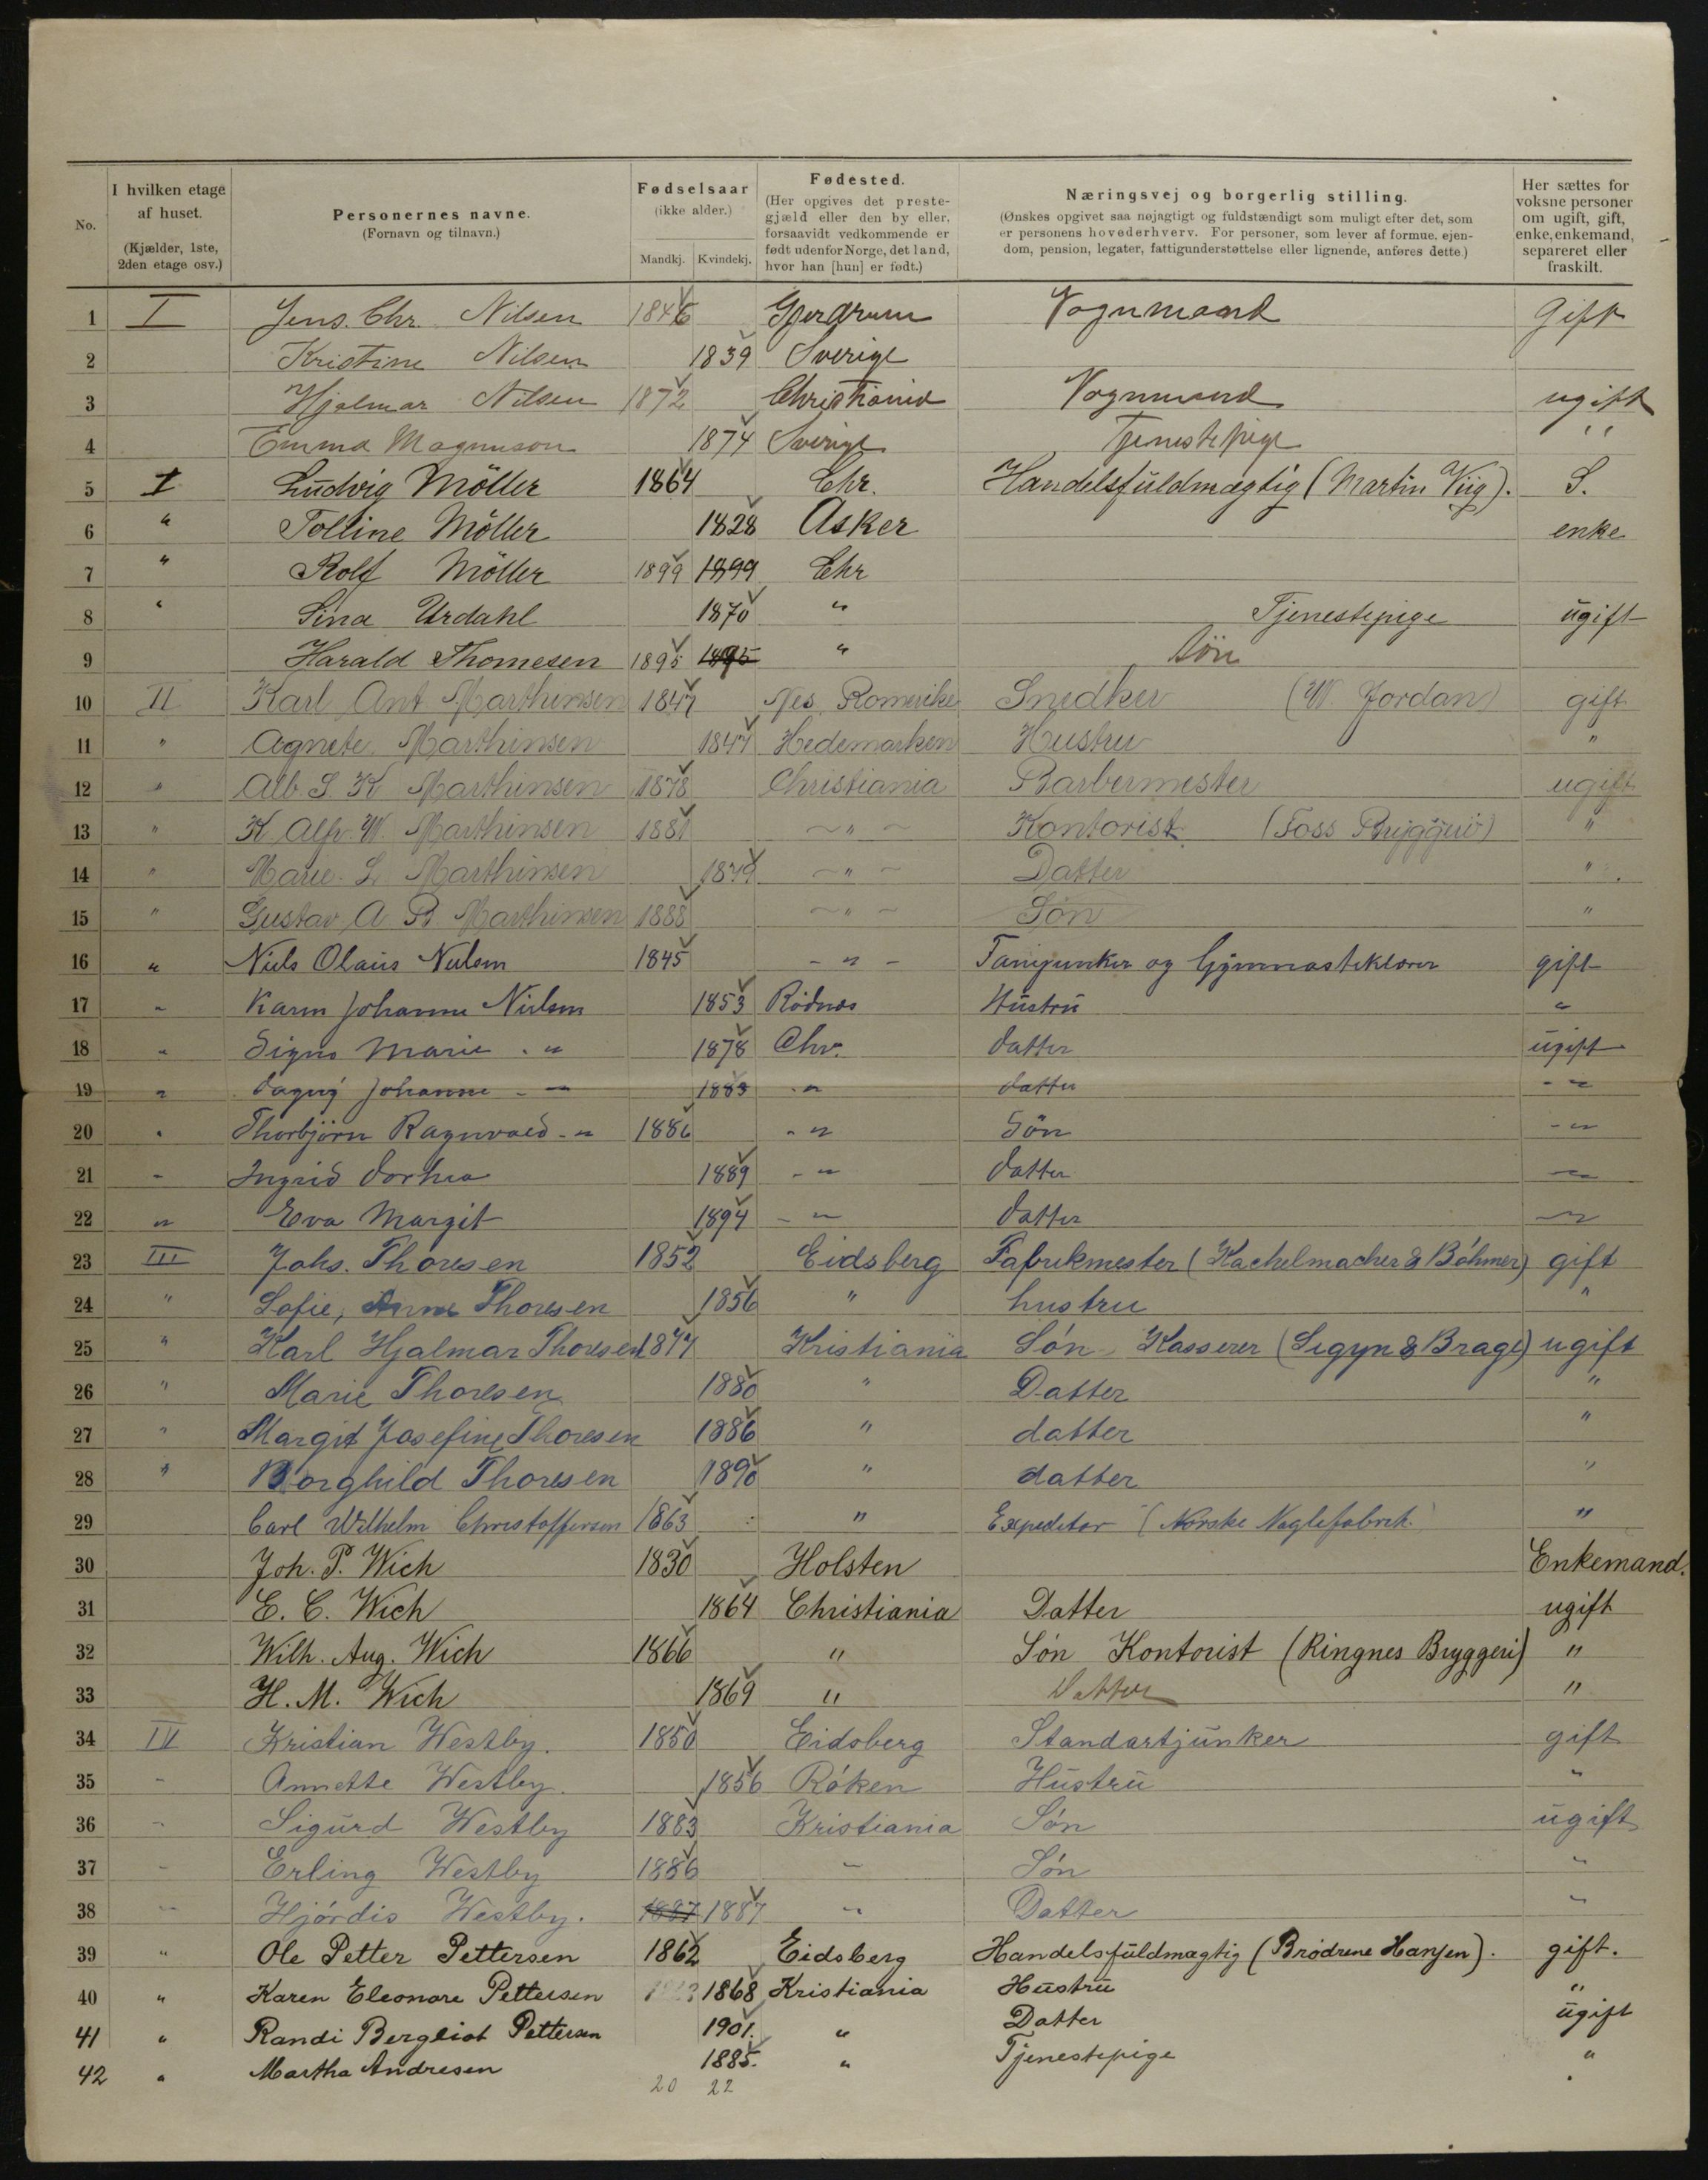 No. | I hvilken etage af huset. (Kjælder, 1ste, 2den etage osv.) | Personernes navne. (Fornavn og tilnavn.) | Fødselsaar (ikke alder.) Mandkj. Kvindekj. | Fødested. (Her opgives det prestegjæld eller den by eller, forsaavidt vedkommende er født udenfor Norge, det land, hvor han [hun] er født.) | Næringsvej og borgerlig stilling. (Ønskes opgivet saa nøjagtigt og fuldstændigt som muligt efter det, som er personens hovederhverv. For personer, som lever af formue, ejendom, pension, legater, fattigunderstøttelse eller lignende, anføres dette.) | Her sættes for voksne personer om ugift, gift, enke, enkemand, separeret eller fraskilt.
1 I Jens. Chr. Nilsen 1846 Gjerdrum Vognmand Gift
2 Kristine Nilsen 1839 Sverige
3 Hjalmar Nilsen 1872 Christiania Vognmand ugift
4 Emma Magnuson 1874 Sverige Tjenestepige ''
5 I Ludvig Möller 1864 Chr. Handelsfuldmægtig (Martin Viig). S.
6 " Tolline Möller 1828 Asker enke
7 " Rolf Möller 1899 1899 Chr
8 " Lina Urdahl 1870 " Tjenestepige ugift
9 Harald Thomesen 1895 1895 " Sön
10 II Karl Ant Marthinsen 1847 Nes, Romerike Snedker (W. Jordan) gift
11 " Agnete Marthinsen 1847 Hedemarken Hustru "
12 " Alb. S. K Marthinsen 1878 Christiania Barbermester ugift
13 " K. Alfr. W. Marthinsen 1881 " Kontorist (Foss Bryggeri) "
14 " Marie. L. Marthinsen 1879 " Datter "
15 " Gustav A B Marthinsen 1888 " Søn "
16 " Niels Olaus Nielsen 1845 " Fanejunker og Gymnastiklærer gift
17 " Karen Johanne Nielsen 1853 Rødnæs Hustru "
18 " Signe Marie " 1878 Chr. datter ugift
19 " Dagny Johanne " 1883 " datter "
20 " Thorbjörn Ragnvald " 1886 " Sön "
21 " Ingrid Dorthea 1889 " datter "
22 " Eva Margit 1894 " datter "
23 III Johs. Thoresen 1852 Eidsberg Fabrikmester (Kachelmacher & Böhmer) gift
24 " Sofie, Anne Thoresen 1856 " hustru "
25 " Karl Hjalmar Thoresen 1877 Kristiania Søn Kasserer (Sigyn & Brage) ugift
26 " Marie Thoresen 1880 " Datter "
27 " Margit Josefine Thoresen 1886 " datter "
28 " Borghild Thoresen 1890 " datter "
29 Carl Wilhelm Christoffersen 1863 " Expeditør (Norske Naglefabrik. "
30 Joh. P. Wich 1830 Holsten Enkemand.
31 E. C. Wich 1864 Christiania Datter ugift
32 Wilh. Aug. Wich 1866 " Søn Kontorist (Ringnes Bryggeri) "
33 H. M. Wich 1869 " Datter "
34 IV Kristian Westby. 1850 Eidsberg Standartjunker gift
35 " Annette Westby. 1856 Røken Hustru "
36 " Sigurd Westby 1883 Kristiania Søn ugift
37 " Erling Westby 1886 " Søn "
38 " Hjørdis Westby. 1887 1887 " Datter "
39 " Ole Petter Pettersen 1862 Eidsberg Handelsfuldmægtig (Brødrene Hansen). gift.
40 " Karen Eleonore Pettersen 1868 Kristiania Hustru "
41 " Randi Bergliot Pettersen 1901. " Datter ugift
42 " Martha Andresen 1885. " Tjenestepige "
20 22